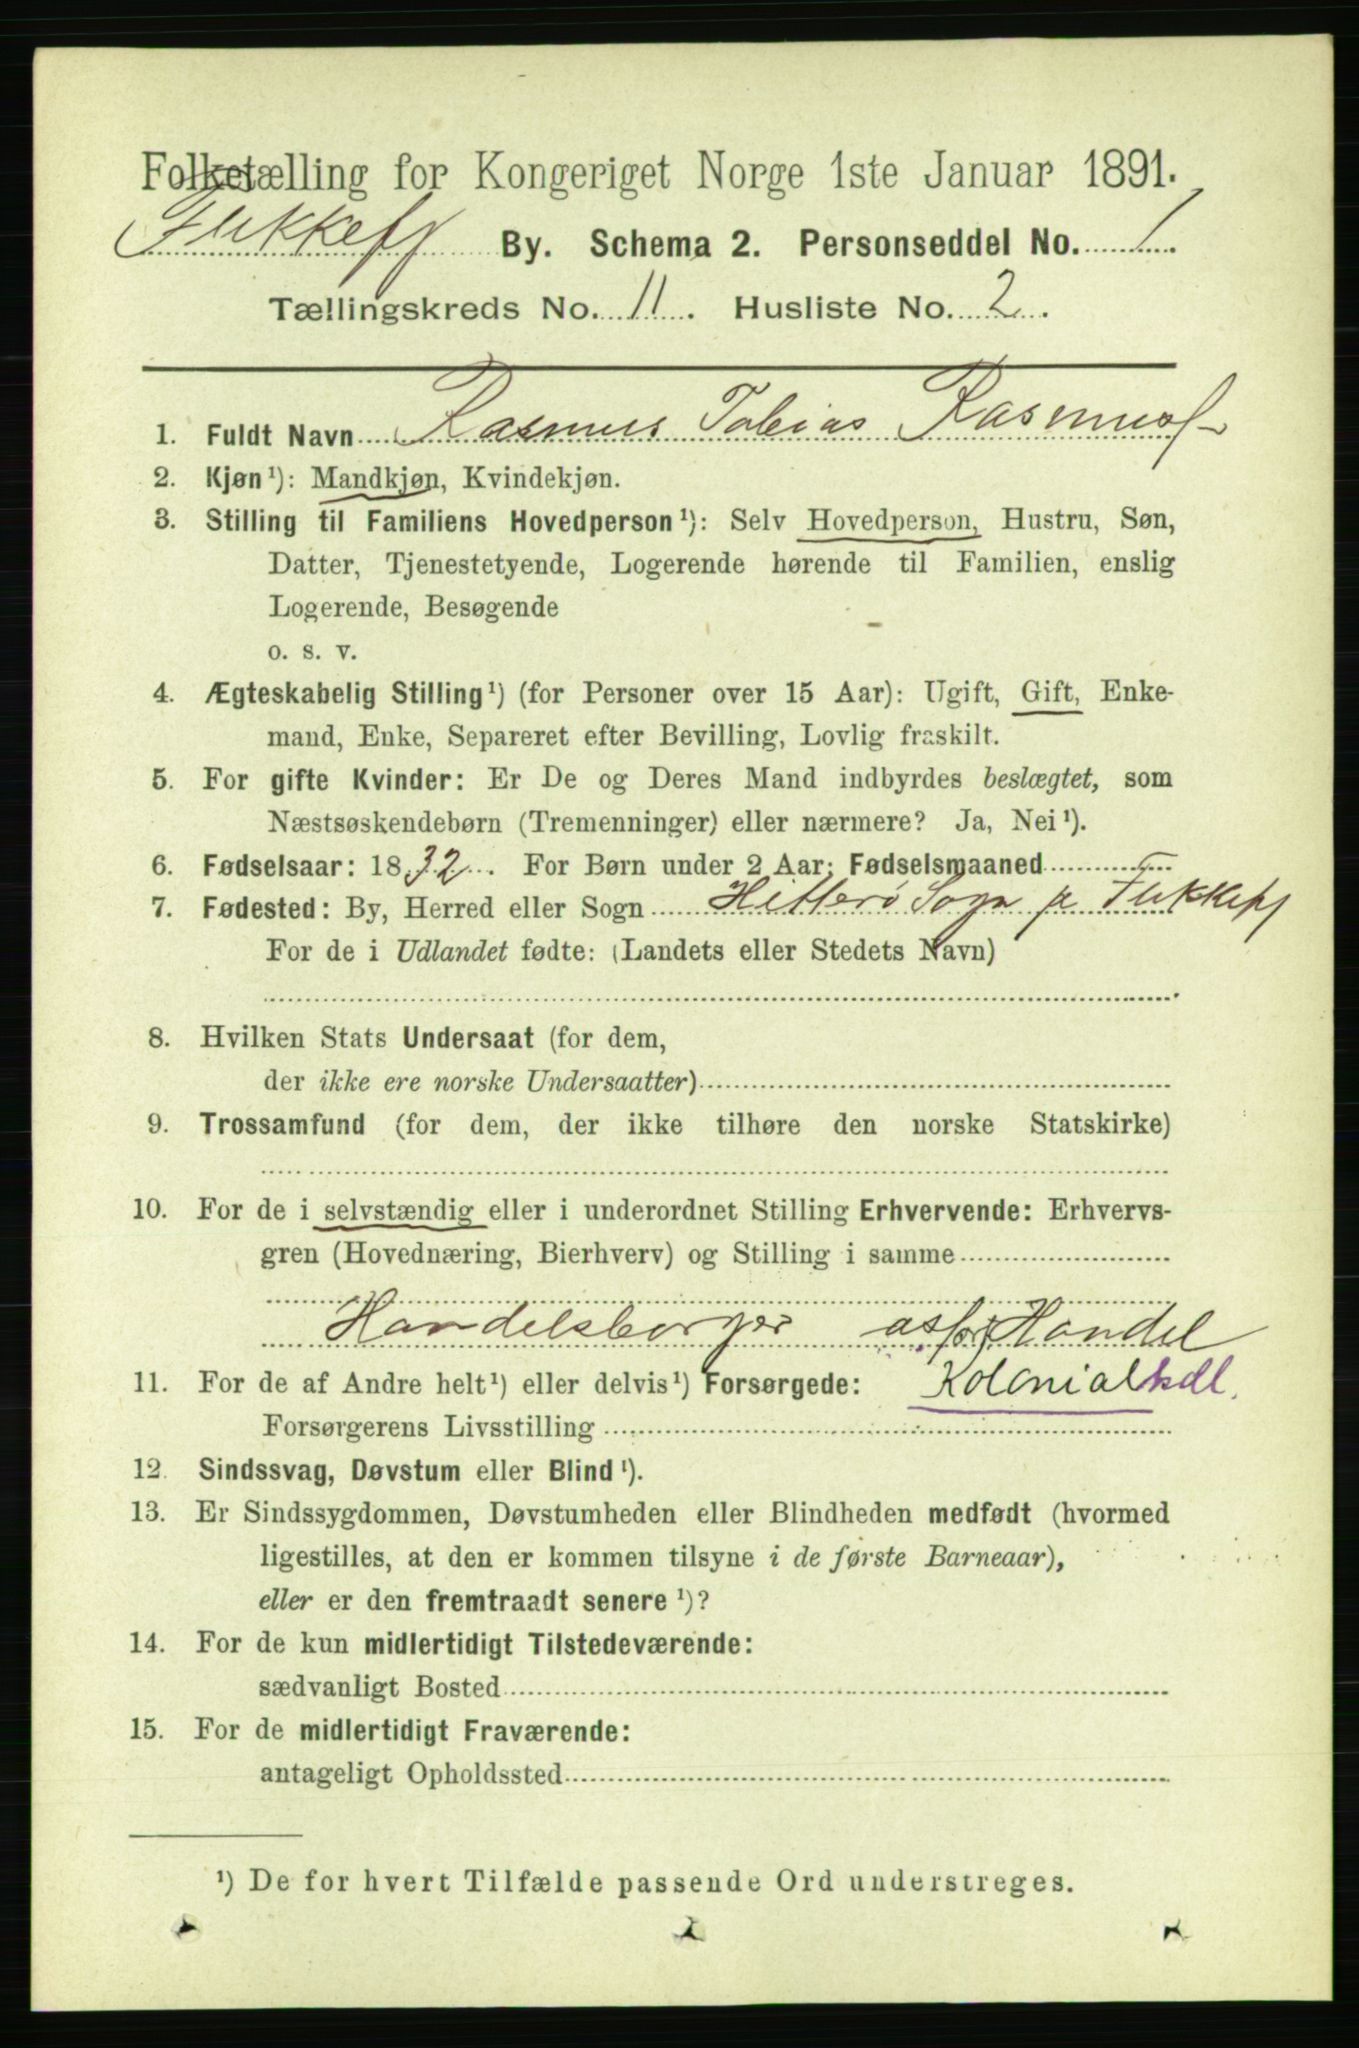 Folketælling for Kongeriget Norge 1ste Januar 1891.
Flekkefj By. Schema 2. Personseddel No. 1.
Tællingskreds No. 11. Husliste No. 2.
1. Fuldt Navn Rasmus Tobias Rasmuss
2. Kjøn¹): Mandkjøn, Kvindekjøn.
3. Stilling til Familiens Hovedperson¹): Selv Hovedperson, Hustru, Søn,
Datter, Tjenestetyende, Logerende hørende til Familien, enslig
Logerende, Besøgende
o. s. v.
4. Ægteskabelig Stilling¹) (for Personer over 15 Aar): Ugift, Gift, Enke-
mand, Enke, Separeret efter Bevilling, Lovlig fraskilt.
5. For gifte Kvinder: Er De og Deres Mand indbyrdes beslægtet, som
Næstsøskendebørn (Tremenninger) eller nærmere? Ja, Nei¹).
6. Fødselsaar: 1832. For Børn under 2 Aar: Fødselsmaaned
7. Fødested: By, Herred eller Sogn Hitterø Sogn pr Flekkefj
For de i Udlandet fødte: (Landets eller Stedets Navn)
8. Hvilken Stats Undersaat (for dem,
der ikke ere norske Undersaatter)
9. Trossamfund (for dem, der ikke tilhøre den norske Statskirke)
10. For de i selvstændig eller i underordnet Stilling Erhvervende: Erhvervs-
gren (Hovednæring, Bierhverv) og Stilling i samme
Handelsborger Handel
11. For de af Andre helt¹) eller delvis¹) Forsørgede: Kolonialhdl.
Forsørgerens Livsstilling
12. Sindssvag, Døvstum eller Blind¹).
13. Er Sindssygdommen, Døvstumheden eller Blindheden medfødt (hvormed
ligestilles, at den er kommen tilsyne i de første Barneaar),
eller er den fremtraadt senere¹)?
14. For de kun midlertidigt Tilstedeværende:
sædvanligt Bosted
15. For de midlertidigt Fraværende:
antageligt Opholdssted
¹) De for hvert Tilfælde passende Ord understreges.